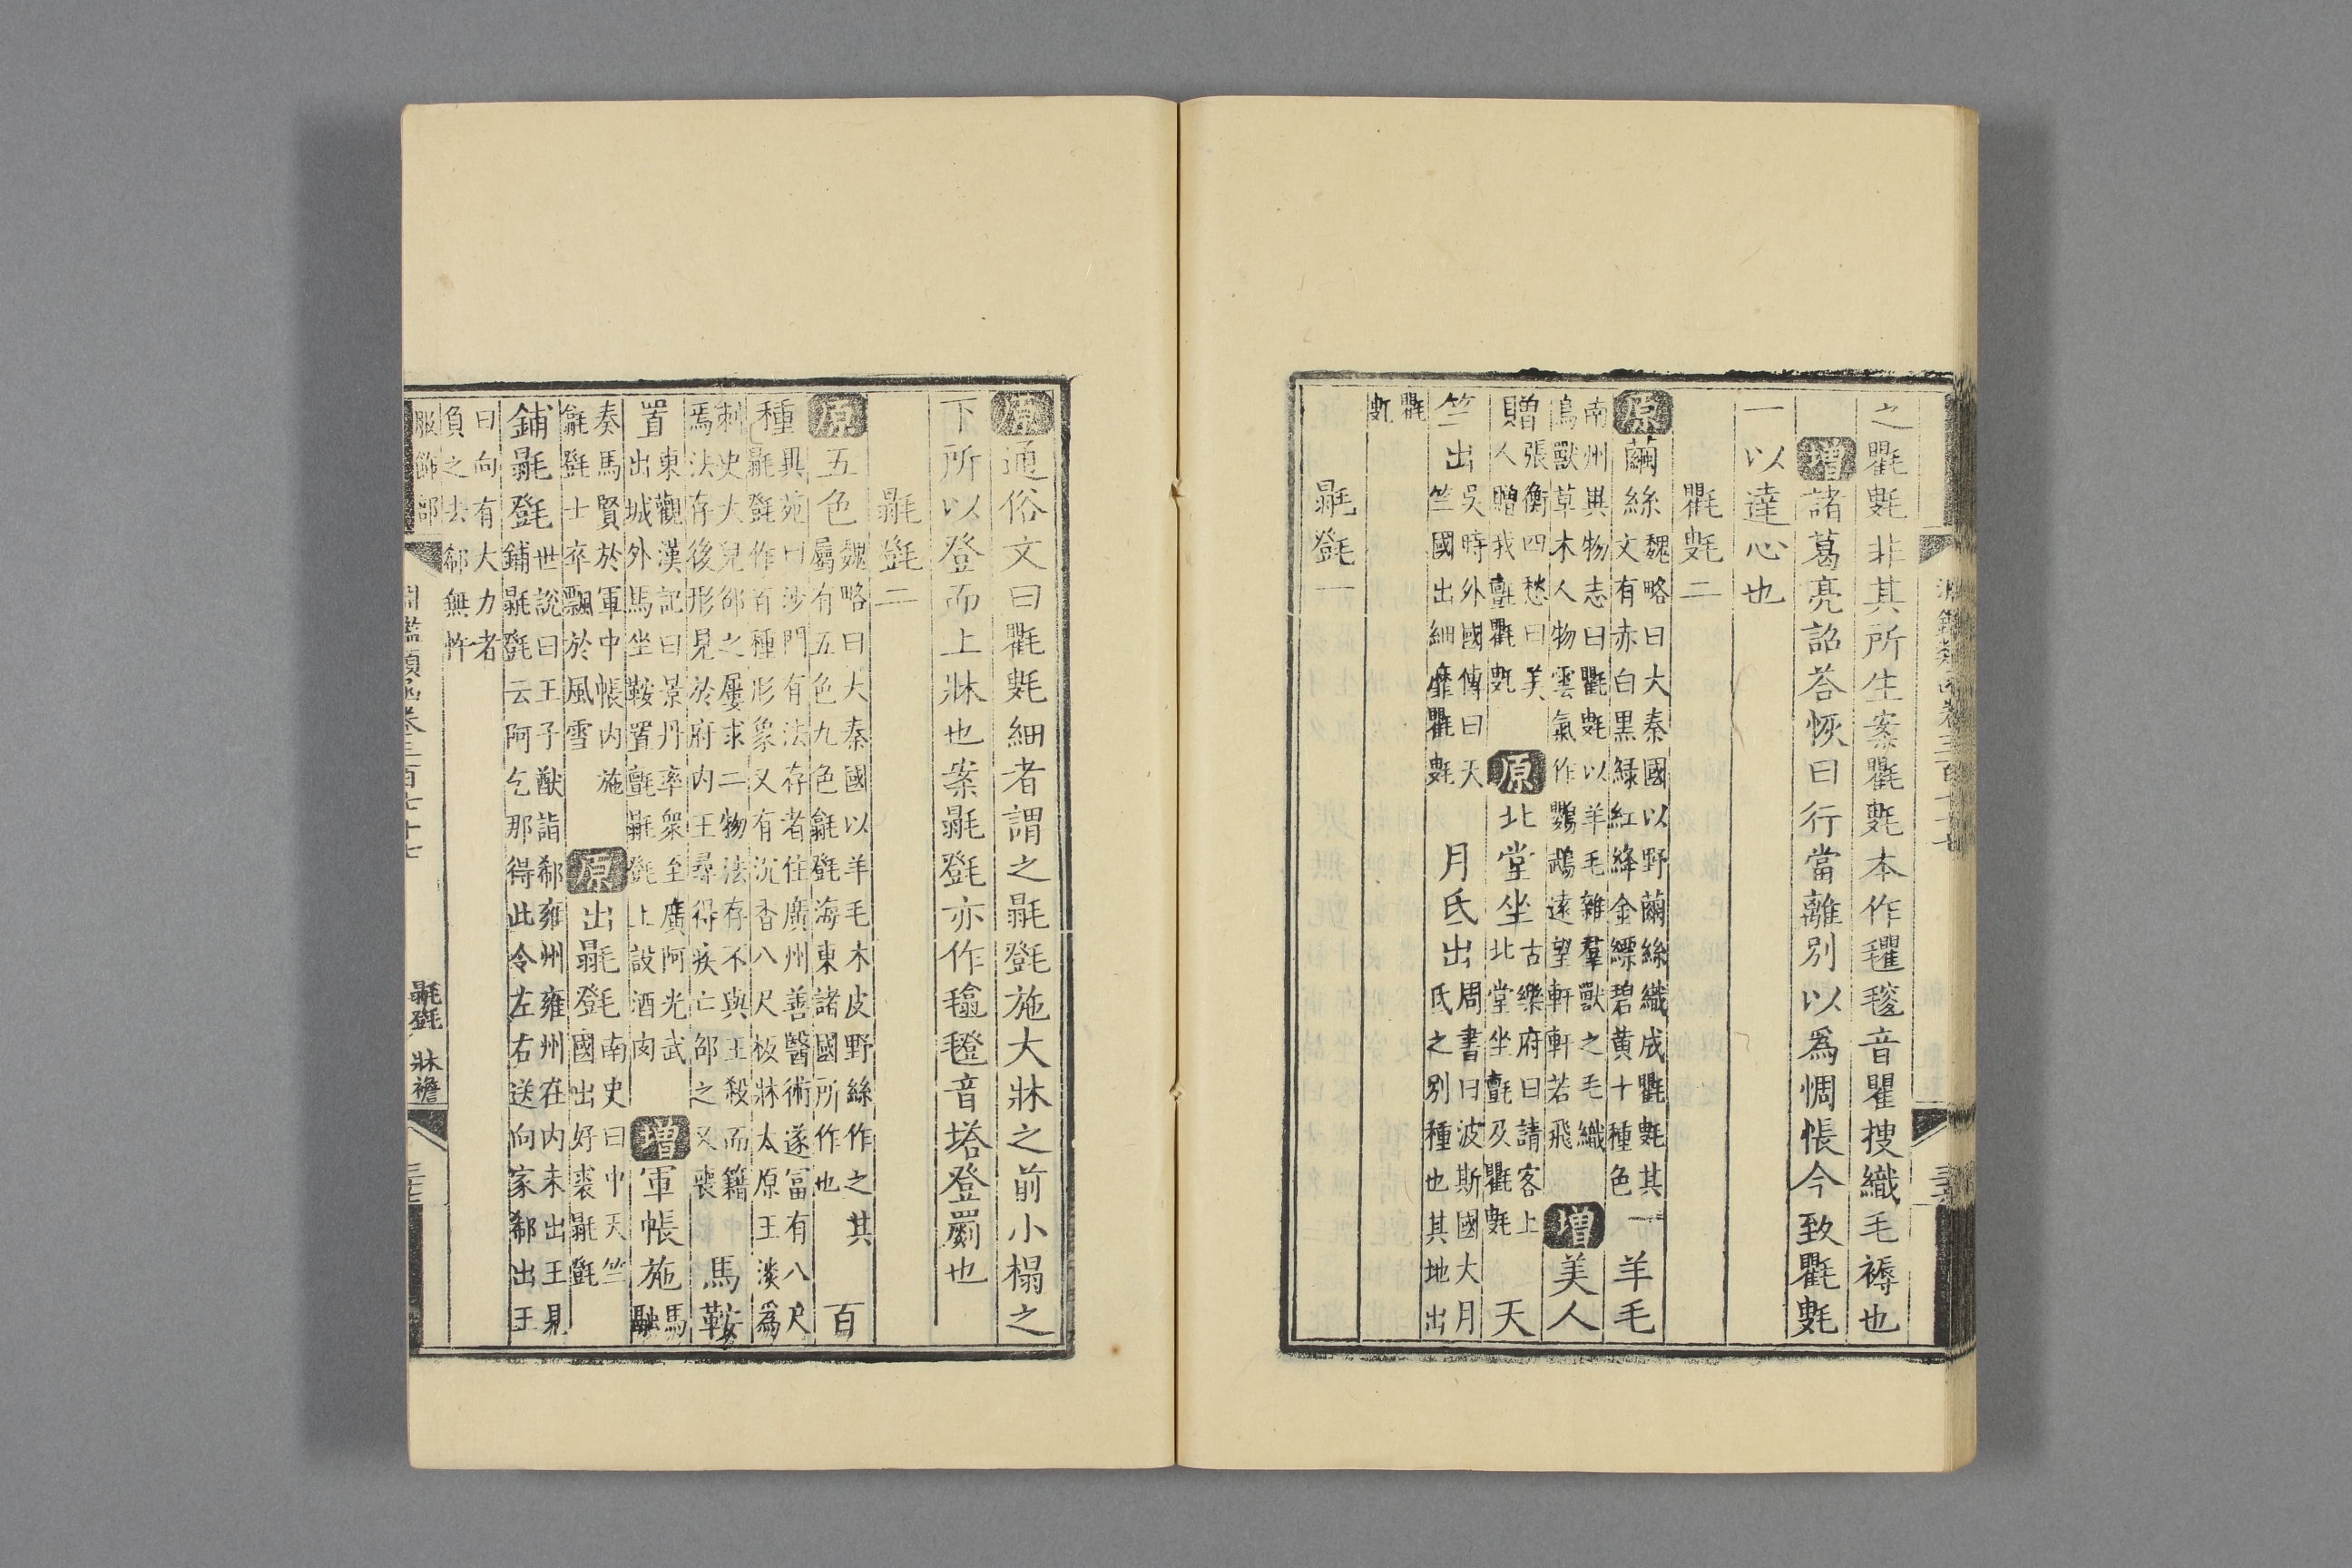 之氍毹非其所生案氍毹本作㲣毯音瞿搜織毛褥也
增諸葛亮詔荅恢曰行當離別以爲惆悵今致氍毹
一以達心也
氍毹二
原繭絲魏略曰大秦國以野繭絲織成氍毹其
文有赤白黑綠紅絳金縹碧黃十種色一羊毛
南州異物志曰氍毹以羊毛雜羣獸之毛織
鳥獸草木人物雲氣作鸚鵡遠望軒軒若飛增美人
贈張衡四愁曰美
人贈我氈氍毹原北堂坐古樂府曰請客上
北堂坐氈及氍毹天
竺出吳時外國傳曰天
竺國出細靡氍毹月氏出周書曰波斯國大月
氏之別種也其地出
氍
毹
㲪㲪一
原通俗文曰氍毹細者謂之㲪㲪施大牀之前小榻之
下所以登而上牀也案㲪㲪亦作毾㲪音塔登罽也
㲪㲪二
原五色魏略曰大秦國以羊毛木皮野絲作之其
屬有五色九色㲪㲪海東諸國所作也百
種異苑曰沙門有法存者住廣州善醫術遂富有八尺
㲪㲪作百種形象又有沉香八尺板牀太原王淡爲
刺史大兒邵之屢求二物法存不與王殺而籍
焉法存後形見於府內王尋得疾亡邵之又喪馬鞍
置東觀漢記曰景丹率衆至廣阿光武
出城外馬坐鞍置氈㲪㲪上設酒肉增軍帳施馬
融
奏馬賢於軍中帳內施
㲪㲪士卒飄於風雪原出㲪㲪南史曰中天竺
國出好裘㲪㲪
鋪㲪㲪世說曰王子猷詣郗雍州雍州在內未出王見
鋪㲪㲪云阿乞那得此令左右送向家郗出王
曰向有大力者
負之去郗無忤
服飾部 淵鑑類函卷三百七十七 㲪㲪 牀襜